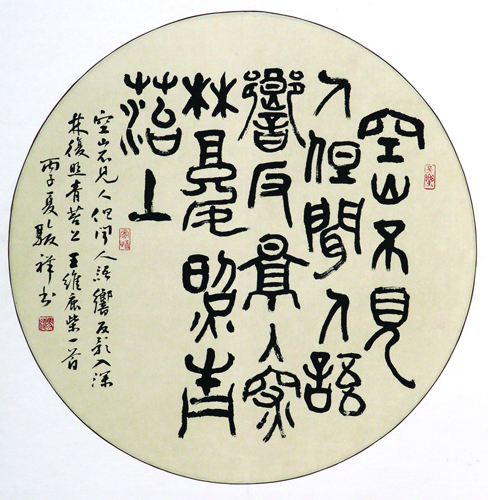 空山不見
人但聞人語
響反景入深
林復照青
菭上
空山不見人但聞人語響反影入深
林復照青苔上 王維鹿柴一首
丙子夏 駿祥书